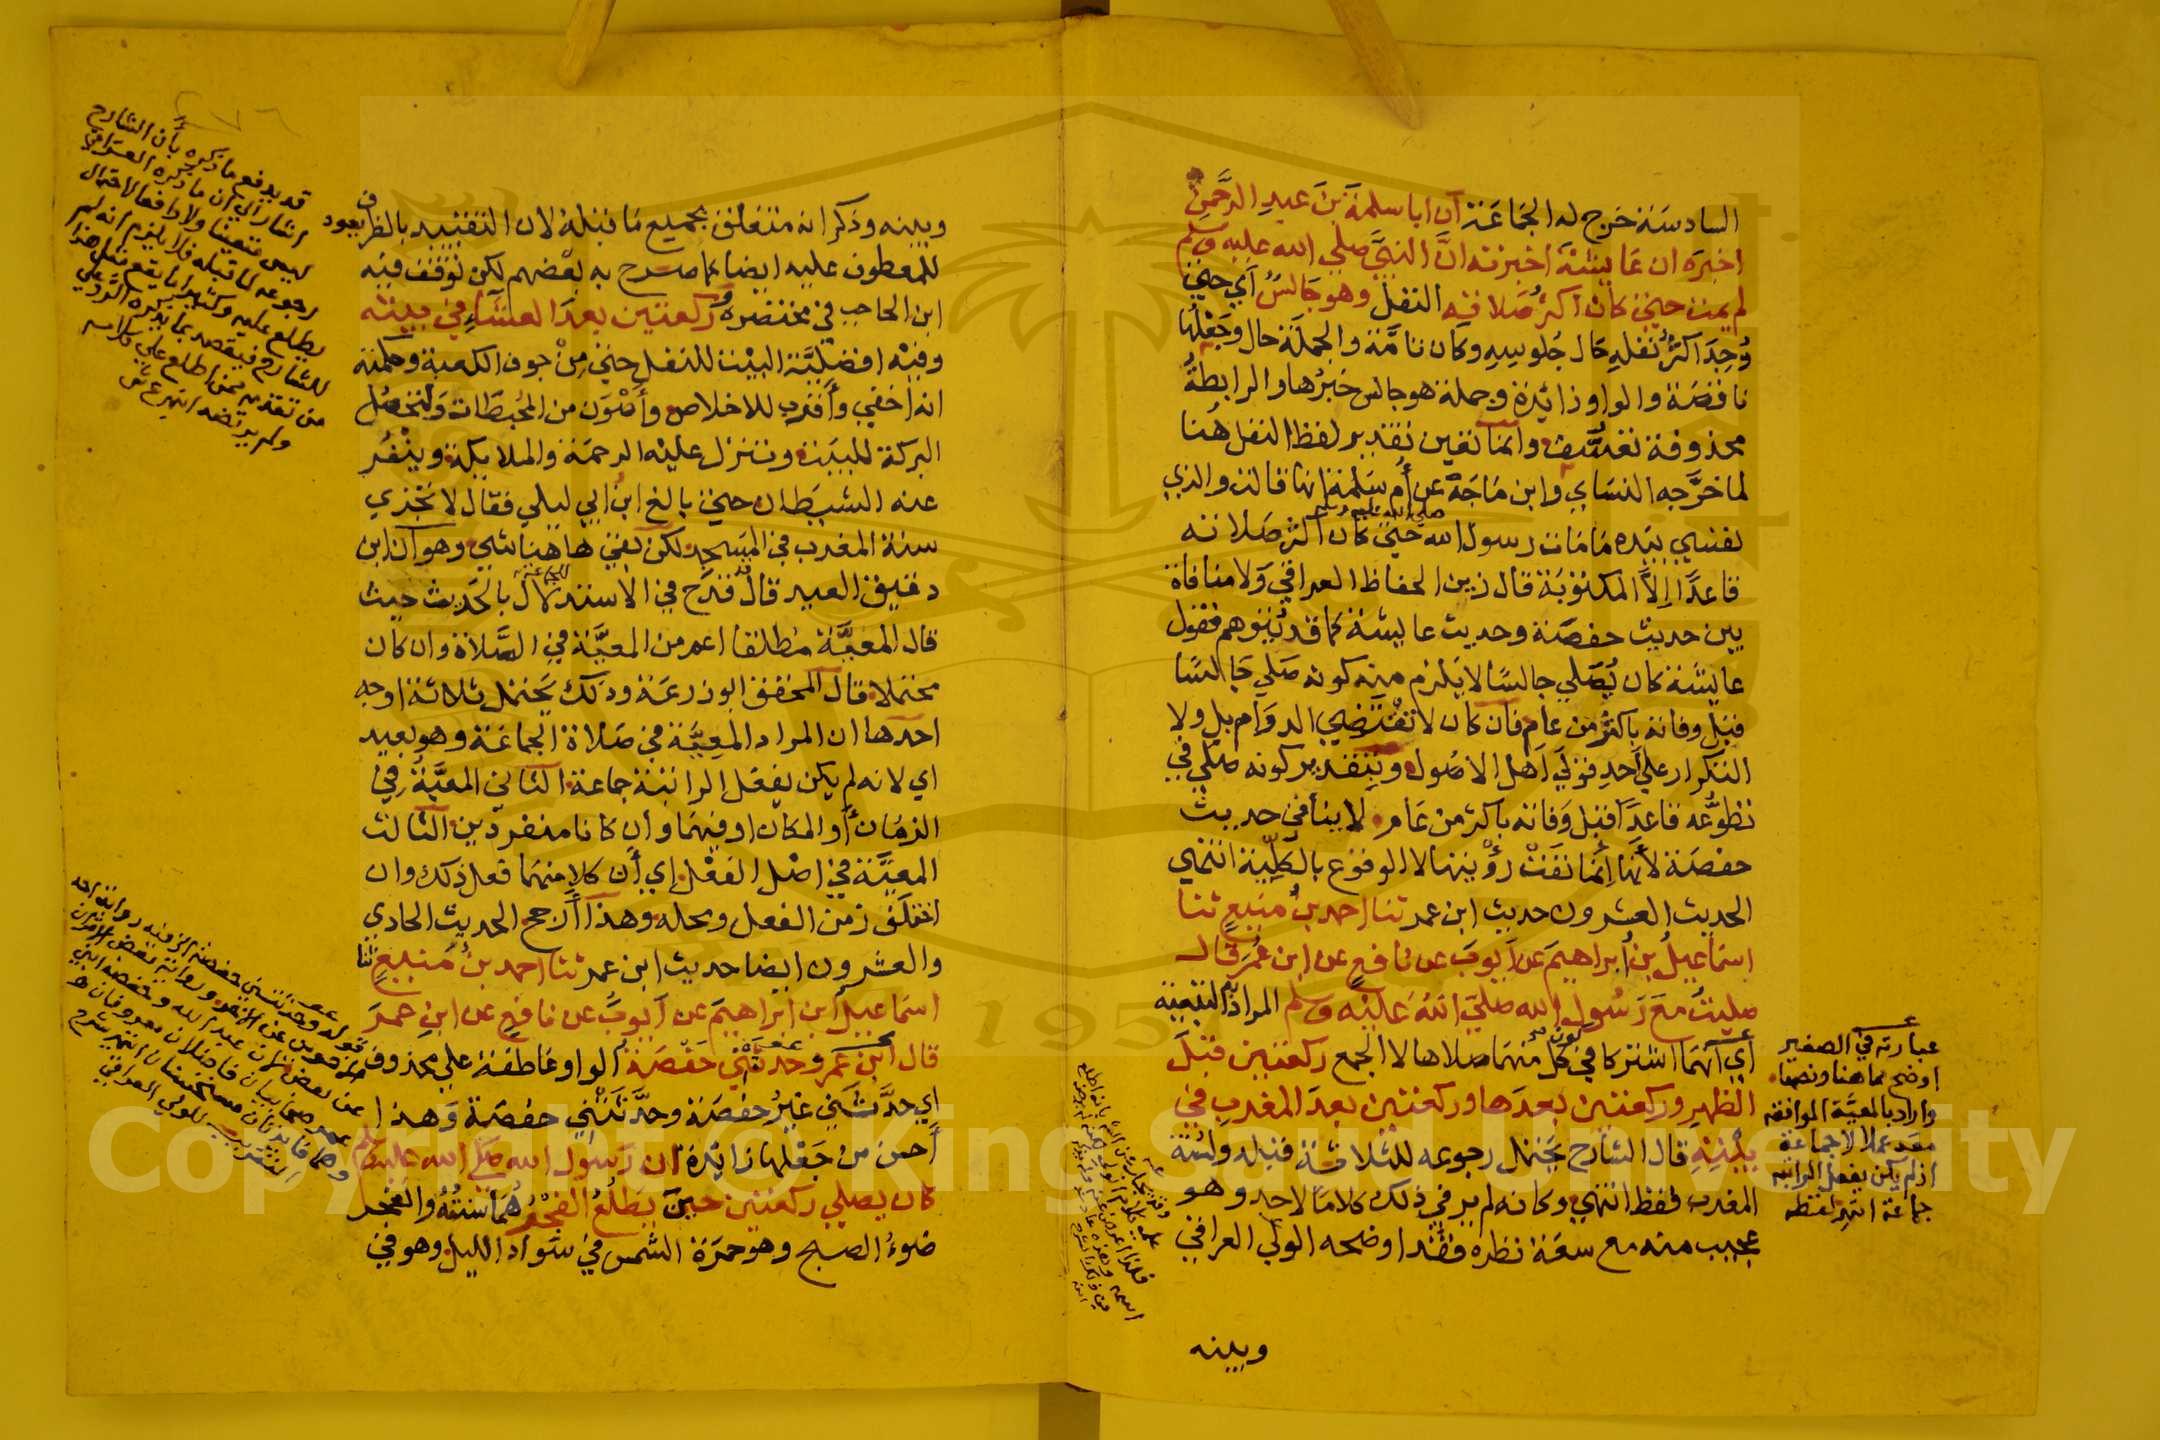 السادسة خرج له الجماعة أن أبا سلمة بن عبد الرحمن
اخبره ان عايشة اخبرته انّ النبي صلي الله عليه وسلم
لم يمت حتي كان اكثر صلاته النفل وهو جالس أي حتي
وُجِدَ اكثر نفله حال جلوسه وكان تامّة والجملة حال وجعلها
ناقصة والواو زائدة وجملة هو جالس خبرها والرابطة
محذوفة تعسّف وانما تعين تقدير لفظ النفل هنا
لما خرّجه النساي وابن ماجة عن أم سلمة انها قالت والذي
نفسي بيده ما مات رسول الله صلي الله عليه وسلم حتي كان اكثر صلاته
قاعدًا إلا المكتوبة قال زين الحفاظ العراقي ولا منافاة
بين حديث حفصة وحديث عايشة كما قد يتوهم فقول
عايشة كان يُصَلي جالسًا لا يلزم منه كونه صلي جالسًا
قبل وفاته باكثر من عام فان كان لا تقتضي الدوام بل ولا
التكرار علي أحد قولي اهل الاصول وبتقدير كونه صلي في
تطوّعه قاعدًا قبل وفاته باكثر من عام لا ينافي حديث
حفصة لأنها إنما نفت رؤيتها لا الوقوع بالكلية انتهي
الحديث العشرون حديث ابن عمر ثنا احمد بن منيع ثنا
اسماعيل بن ابراهيم عن أيوب عن نافع عن ابن عمر قال
صليت مع رسول الله صلي الله عليه وسلم المراد التبعية
أي انهما اشتركا في كون كل منهما صلاها لا الجمع ركعتين قبل
الظهر وركعتين بعدها وركعتين بعد المغرب في
بيته قال الشارح يحتمل رجوعه للثلاثة قبله ولسنة
المغرب فقط انتهي وكانه لم ير في ذلك كلاما لاحد وهو
عجيب منه مع سعة نظره فقد اوضحه الولي العراقي
وبينه
عبارته في الصغير
اوضح مما هنا ونصها
واراد بالمعيّة الموافقة
معه عملا لا جماعة
اذ لم يكن يفعل الراتبة
جماعة انتهي لفظه
وبينه وذكر انه متعلق بجميع ما قبله لان التقييد بالظرف يعود
للمعطوف عليه ايضا كما صرح به بعضهم لكن توقف فيه
ابن الحاجب في مختصره وركعتين بعد العشاء في بيته
وفيه افضليّة البيت للنفل حتي من جوف الكعبة وحكمته
انه اخفي وأقرب للاخلاص وأصْوَن من المُحبطات ولتحصل
البركة للبيت وتتنزل عليه الرحمة والملايكة وينفُر
عنه الشيطان حتي بالغ ابن ابي ليلي فقال لا تجزي
سنة المغرب في المسجد لكن بقي هاهنا شي وهو أن ابن
دقيق العيد قال قدح في الاستدلال بالحديث حيث
قال المعيّة مطلقا اعم من المعيّة في الصّلاة وان كان
محتملا قال المحقق ابو زرعة وذلك يحتمل ثلاثة اوجه
احدها ان المراد المعيّة في صلاة الجماعة وهو بعيد
اي لانه لم يكن يفعل الراتبة جماعة الثاني المعيّة في
الزمان أو المكان او فيهما وان كانا منفردين الثالث
المعيّة في اصل الفعل اي أن كلا منهما فعل ذلك وان
اختلف زمن الفعل ومحله وهذا أرجح الحديث الحادي
والعشرون ايضا حديث ابن عمر ثنا احمد بن منيع ثنا
اسماعيل ابن ابراهيم عن أيوب عن نافع عن ابن عمر
قال ابن عمر وحدثتني حفصة الواو عاطفة علي محذوف
اي حدّثني غيرُ حفصة وحدّثتني حفصة وهذا
أحسن من جعلها زائدة ان رسول الله صلي الله عليه وسلم
كان يصلي ركعتين حين يطلع الفجر هما سنته والفجر
ضوءُ الصبح وهو حمرة الشمس في سواد الليل وهو في
قد يدفع ما ذكره بأن الشارح
اشار الي ان ما ذكره العراقي
ليس متعينا ولا دافعا لاحتمال
رجوعه لما قبله فلا يلزم انه لم
يطلع عليه وكثيرا ما يقع مثل هذا